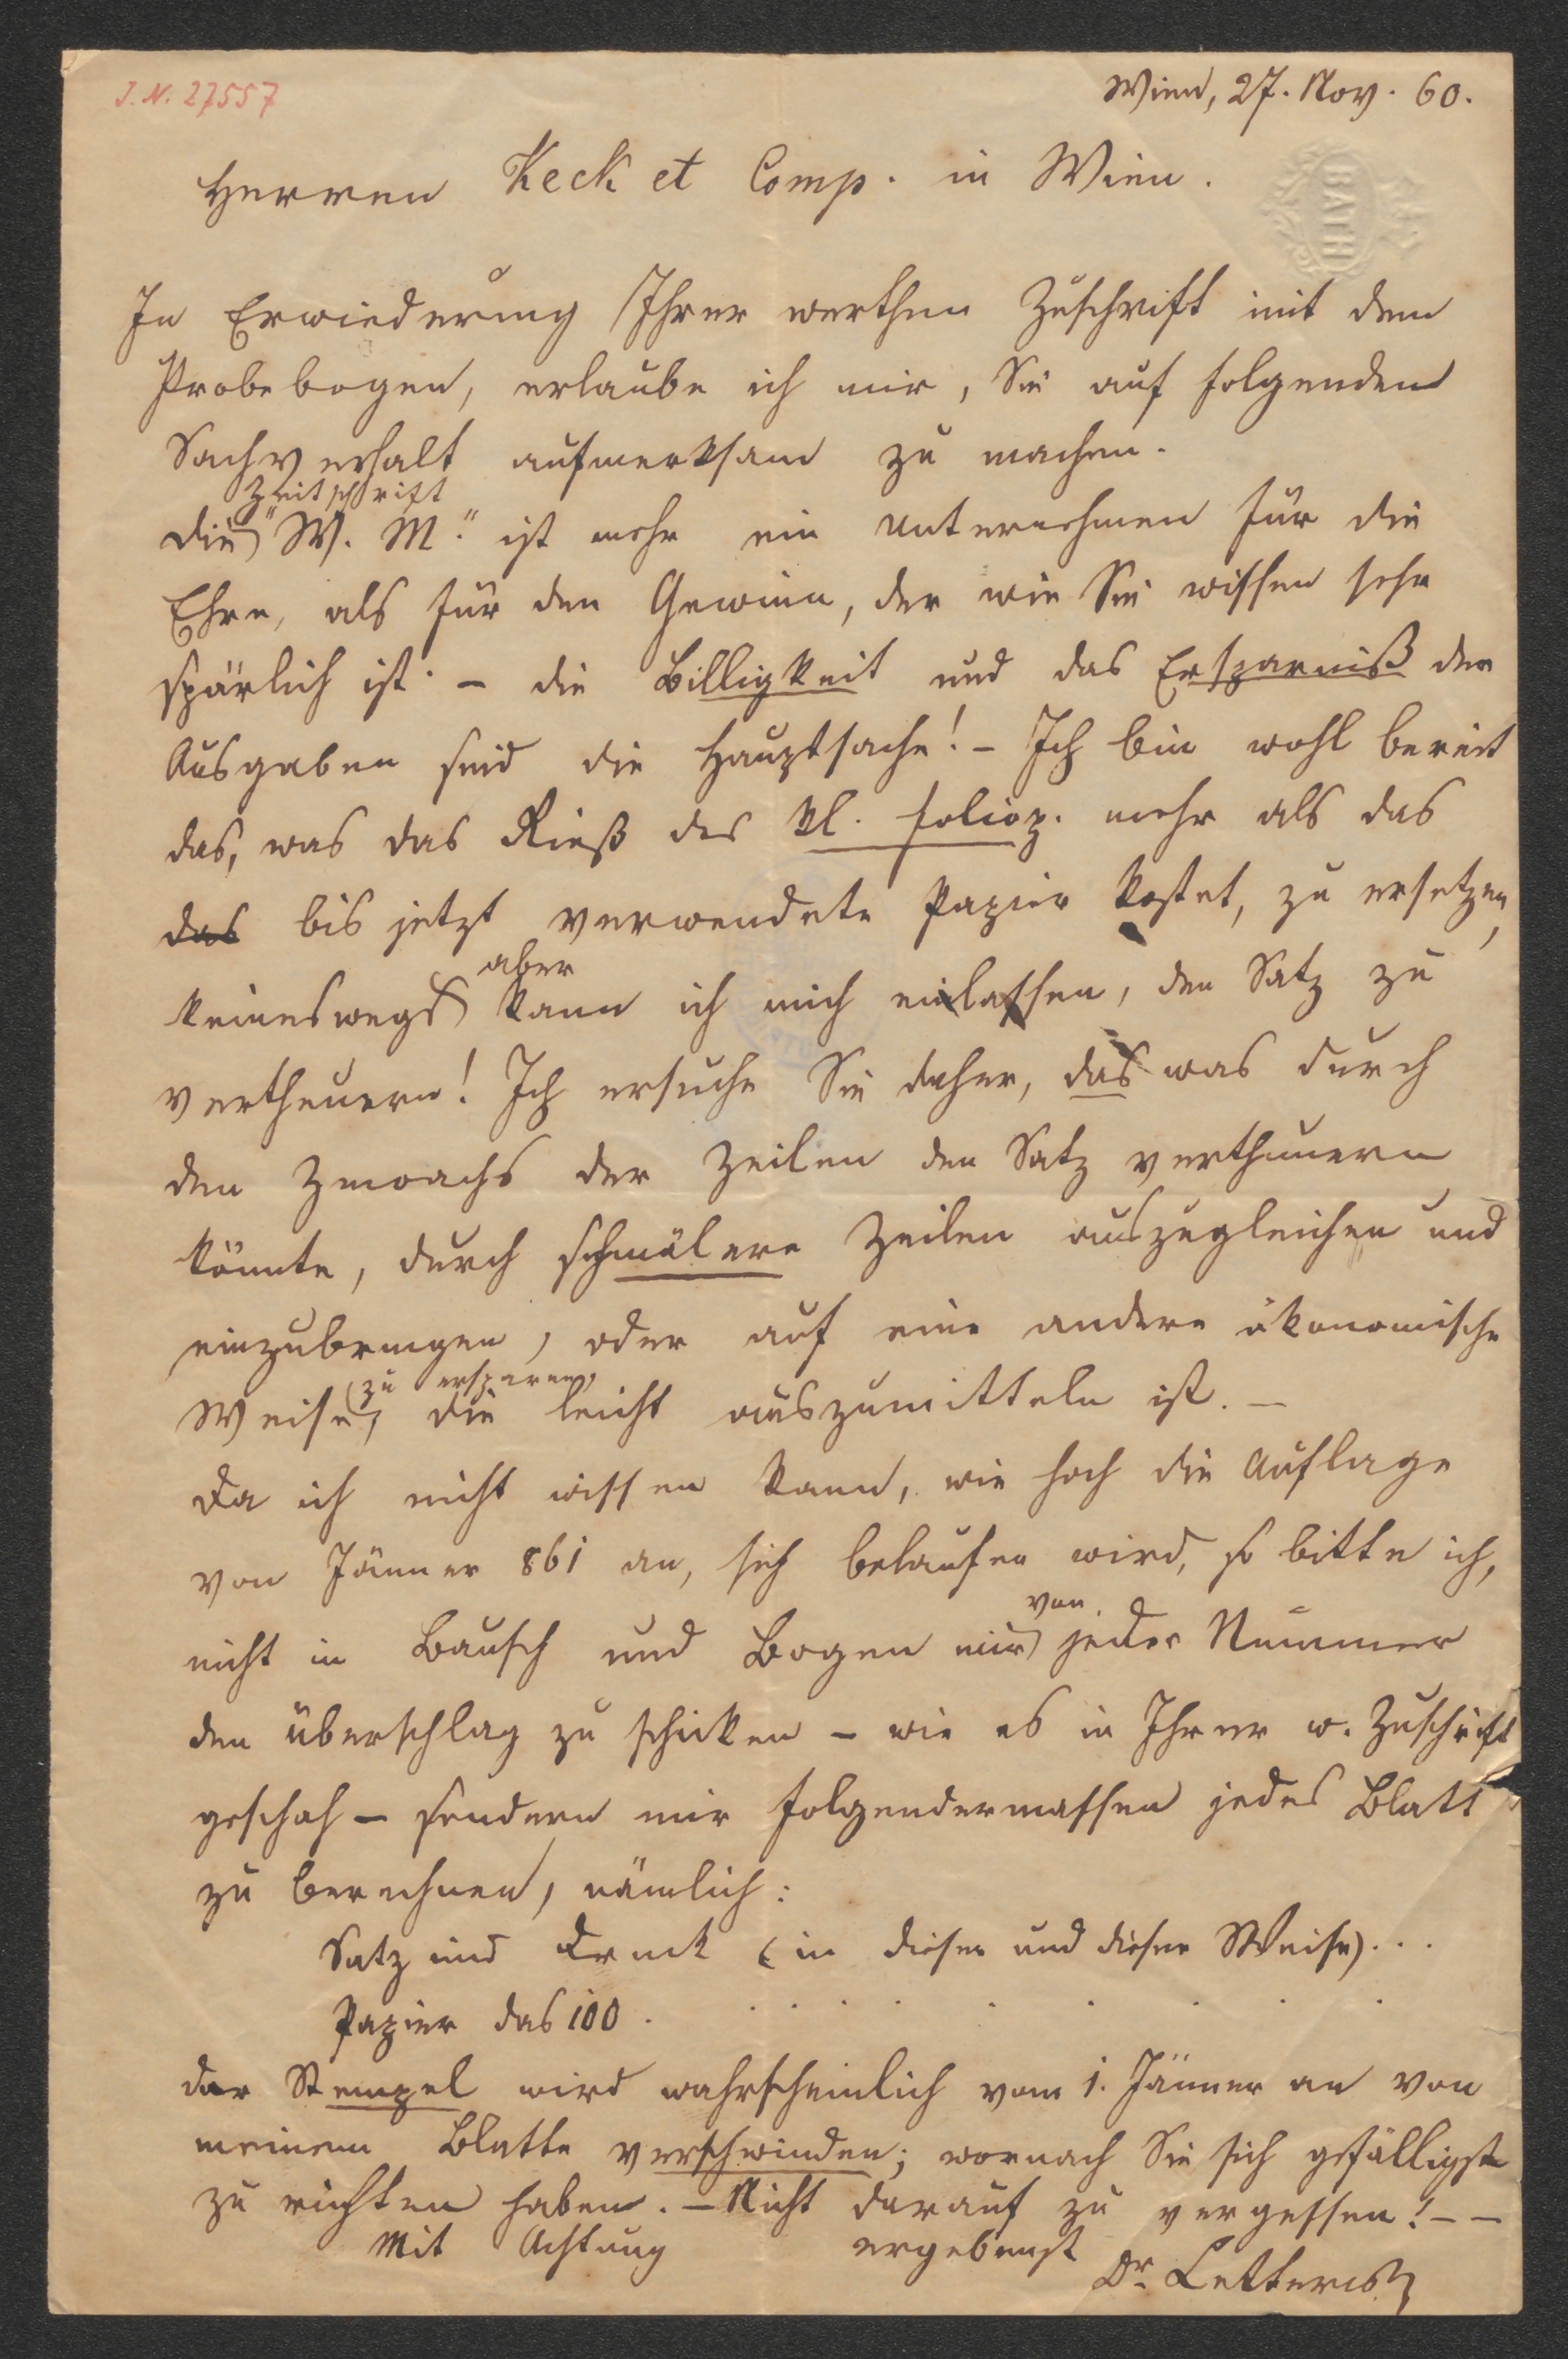 J. N. 27557
Wien, 27. Nov. 60.
BATH
Herren Keck et Comp. in Wien.
In Erwiederung Ihrer werthen Zuschrift mit dem
Probebogen, erlaube ich mir, Sie auf folgenden
Sachverhalt aufmerksam zu machen.
Zeitschrift
Die "W. M." ist mehr ein Unternehmen für die
Ehre, als für den Gewinn, der wie Sie wissen sehr
spärlich ist. – die Billigkeit und das Ersparniß der
Ausgaben sind die Hauptsache! – Ich bin wohl bereit
das, was das Rieß des kl. foliop. mehr als das
das bis jetzt verwendete Papier kostet, zu ersetzen,
aber
keineswegs kann ich mich einlassen, den Satz zu
vertheuern! Ich ersuche Sie daher, das was durch
den Zuwachs der Zeilen den Satz vertheuern
könnte, durch schmälere Zeilen auszugleichen und
einzubringen, oder auf eine andere ökonomische
(zu ersparen)
Weise, die leicht auszumitteln ist. –
Da ich nicht wissen kann, wie hoch die Auflage
von Jänner 861 an, sich belaufen wird, so bitte ich,
von
nicht in Bausch und Bogen mir jeder Nummer
den Überschlag zu schicken – wie es in Ihrer w. Zuschrift
geschah – sondern mir folgendermassen jedes Blatt
zu berechnen, nämlich:
Satz und Druck (in dieser und dieser Weise) . . .
Papier das 100 . . . . . . . . . .
der Stempel wird wahrscheinlich vom 1. Jänner an von
meinem Blatte verschwinden; wornach Sie sich gefälligst
zu richten haben. – Nicht darauf zu vergessen! – –
Mit Achtung ergebenst
Dr. Letteris